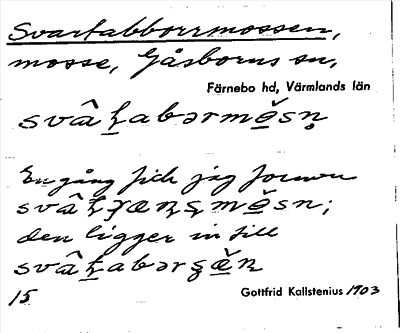 Svartabborrmossen,
mosse, Gåsborns sn,
Färnebo hd, Värmlands län
svâʈabərmě̲sn̥
En gång fick jag formen
mě̲sn̥;
den ligger in till
svâʈabər
15 Gottfrid Kallstenius 1903